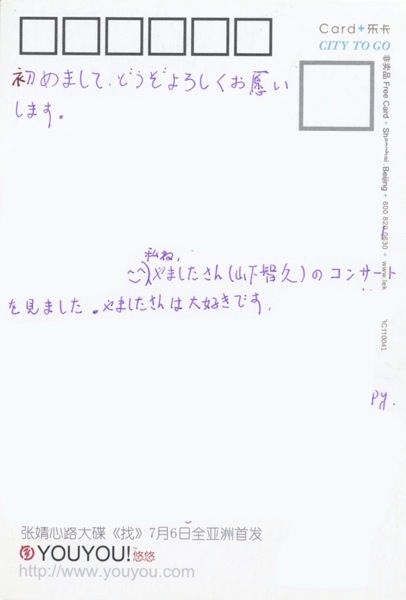 Card+乐卡
CITY TO GO
非卖品 Free Card + Shanghai, Beijing + 800 820 0630 + www.lek
初めまして、どうぞよろしくお愿い
します。
私ね,
やましたさん(山下智久)のコンサート
を見ました。やましたさんは大好きです.
py.
张婧心路大碟《找》7月6日全亚洲首发
YOUYOU!™悠悠
http://www.youyou.com